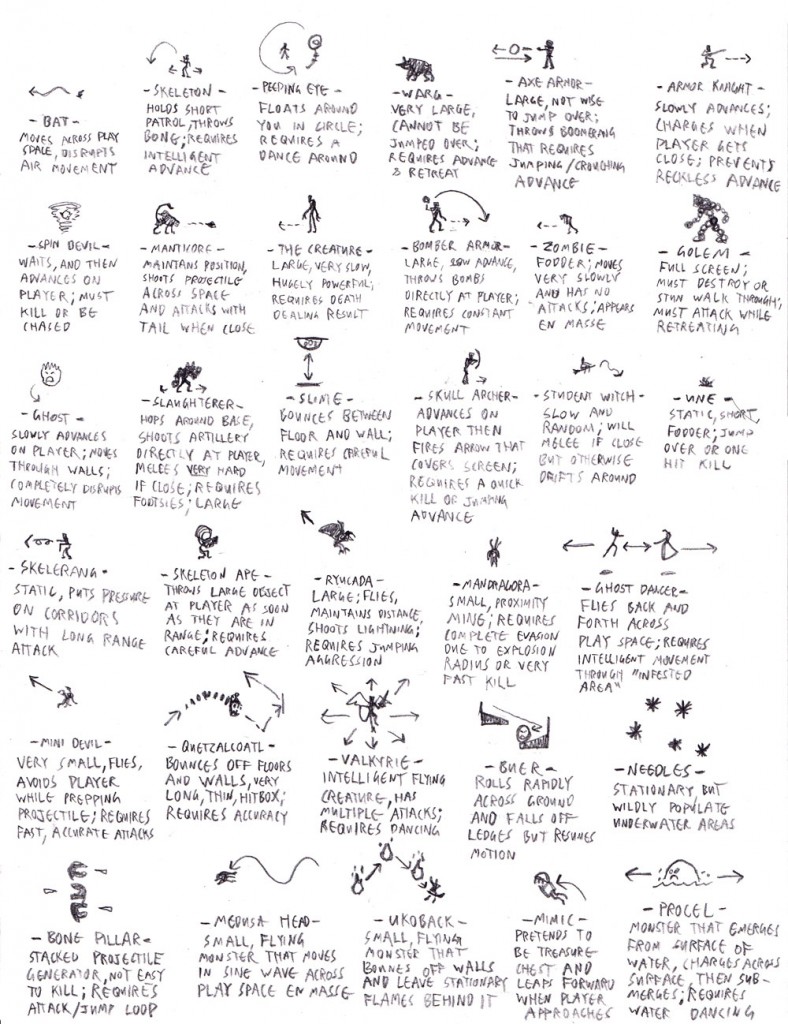 - BAT -
MOVES ACROSS PLAY
SPACE, DISRUPTS
AIR MOVEMENT
- SKELETON -
HOLDS SHORT
PATROL, THROWS
BONE; REQUIRES
INTELLIGENT
ADVANCE
- PEEPING EYE -
FLOATS AROUND
YOU IN CIRCLE;
REQUIRES A
DANCE AROUND
- WARG -
VERY LARGE,
CANNOT BE
JUMPED OVER;
REQUIRES ADVANCE
& RETREAT
- AXE ARMOR -
LARGE, NOT WISE
TO JUMP OVER;
THROWS BOOMERANG
THAT REQUIRES
JUMPING/CROUCHING
ADVANCE
- ARMOR KNIGHT -
SLOWLY ADVANCES;
CHARGES WHEN
PLAYER GETS
CLOSE; PREVENTS
RECKLESS ADVANCE
- SPIN DEVIL -
WAITS, AND THEN
ADVANCES ON
PLAYER; MUST
KILL OR BE
CHASED
- MANTICORE -
MAINTANS POSITION,
SHOOTS PROJECTILE
ACROSS SPACE
AND ATTACKS WITH
TAIL WHEN CLOSE
- THE CREATURE -
LARGE, VERY SLOW,
HUGELY POWERFUL;
REQUIRES DEATH
DEALING RESULT
- BOMBER ARMOR -
LARGE, SLOW ADVANCE,
THROWS BOMBS
DIRECTLY AT PLAYER;
REQUIRES CONSTANT
MOVEMENT
- ZOMBIE -
FODDER; MOVES
VERY SLOWLY
AND HAS NO
ATTACKS; APPEARS
EN MASSE
- GOLEM -
FULL SCREEN;
MUST DESTROY OR
STUN WALK THROUGH;
MUST ATTACK WHILE
RETREATING
- GHOST -
SLOWLY ADVANCES
ON PLAYER; MOVES
THROUGH WALLS;
COMPLETELY DISRUPTS
MOVEMENT
- SLAUGHTERER -
HOPS AROUND BASE,
SHOOTS ARTILLERY
DIRECTLY AT PLAYER,
MELEES VERY HARD
IF CLOSE; REQUIRES
FOOTSIES; LARGE
- SLIME -
BOUNCES BETWEEN
FLOOR AND WALL;
REQUIRES CAREFUL
MOVEMENT
- SKULL ARCHER -
ADVANCES ON
PLAYER THEN
FIRES ARROW THAT
COVERS SCREEN;
REQUIRES A QUICK
KILL OF JUMPING
ADVANCE
- STUDENT WITCH -
SLOW AND
RANDOM; WILL
MELEE IF CLOSE
BUT OTHERWISE
DRIFTS AROUND
- VINE -
STATIC, SHORT,
FODDER; JUMP
OVER OR ONE
HIT KILL
- SKELERANG -
STATIC, PUTS PRESSURE
ON CORRIDORS
WITH LONG RANGE
ATTACK
- SKELETON APE -
THROWS LARGE OBJECT
AT PLAYER AS SOON
AS THEY ARE IN
RANGE; REQUIRES
CAREFUL ADVANCE
- RYUCADA -
LARGE; FLIES,
MAINTAINS DISTANCE,
SHOOTS LIGHTNING;
REQUIRES JUMPING
AGGRESSION
- MANDRAGORA -
SMALL, PROXIMITY
MINE; REQUIRES
COMPLETE EVASION
DUE TO EXPLOSION
RADIUS OR VERY
FAST KILL
- GHOST DANCER -
FLIES BACK AND
FORTH ACROSS
PLAY SPACE; REQUIRES
INTELLIGENT MOVEMENT
THROUGH "INFESTED
AREA"
- MINI DEVIL -
VERY SMALL, FLIES,
AVOIDS PLAYER
WHILE PREPPING
PROJECTILE; REQUIRES
FAST, ACCURATE ATTACKS
- QUETZALCOATL -
BOUNCES OFF FLOORS
AND WALLS, VERY
LONG, THIN, HITBOX;
REQUIRES ACCURACY
- VALKYRIE -
INTELLIGENT FLYING
CREATURE, HAS
MULTIPLE ATTACKS;
REQUIRES DANCING
- BUER -
ROLLS RAPIDLY
ACROSS GROUND
AND FALLS OFF
LEDGES BUT RESUMES
MOTION
- NEEDLES -
STATIONARY, BUT
WILDLY POPULATE
UNDERWATER AREAS
- BONE PILLAR -
STACKED PROJECTILE
GENERATOR, NOT EASY
TO KILL; REQUIRES
ATTACK/JUMP LOOP
- MEDUSA HEAD -
SMALL, FLYING
MONSTER THAT MOVES
IN SINE WAVE ACROSS
PLAY SPACE EN MASSE
- UKOBACK -
SMALL, FLYING
MONSTER THAT
BOUNES OFF WALLS
AND LEAVE STATIONARY
FLAMES BEHIND IT
- MIMIC -
PRETENDS TO
BE TREASURE
CHEST AND
LEAPS FORWARD
WHEN PLAYER
APPROACHES
- PROCEL -
MONSTER THAT EMERGES
FROM SURFACE OF
WATER, CHARGES ACROSS
SURFACE, THEN SUB-
MERGES; REQUIRES
WATER DANCING